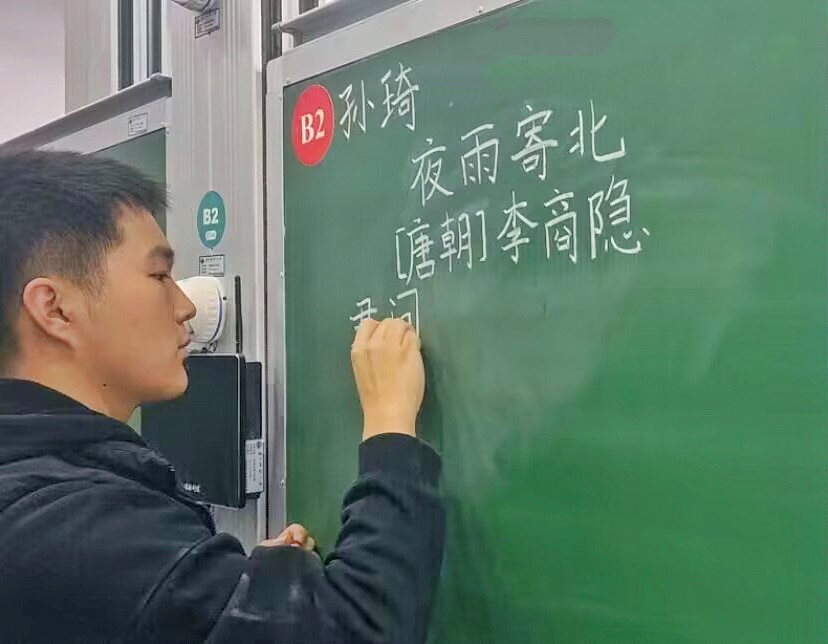 B2 孙琦
夜雨寄北
[唐朝]李商隐
君问
B2